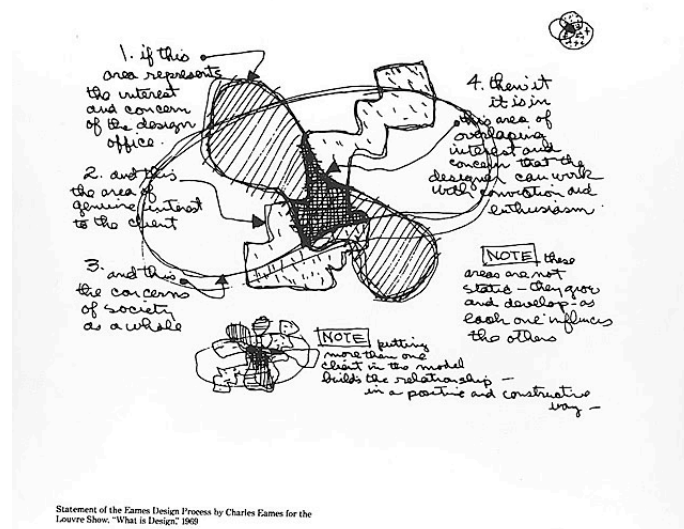 1. if this
area represents
the interest
and concern
of the design
office.
2. and this
the area of
genuine interest
to the client
3. and this
the concerns
of society
as a whole
4. then it
it is in
this area of
overlaping
interest and
concern that the
designer can work
with conviction and
enthusiasm.
NOTE these
areas are not
static – they grow
and develop – as
each one influences
the others
NOTE putting
more than one
client in the model
builds the relationship –
in a positive and constructive
way –
Statement of the Eames Design Process by Charles Eames for the
Louvre Show. "What is Design." 1969